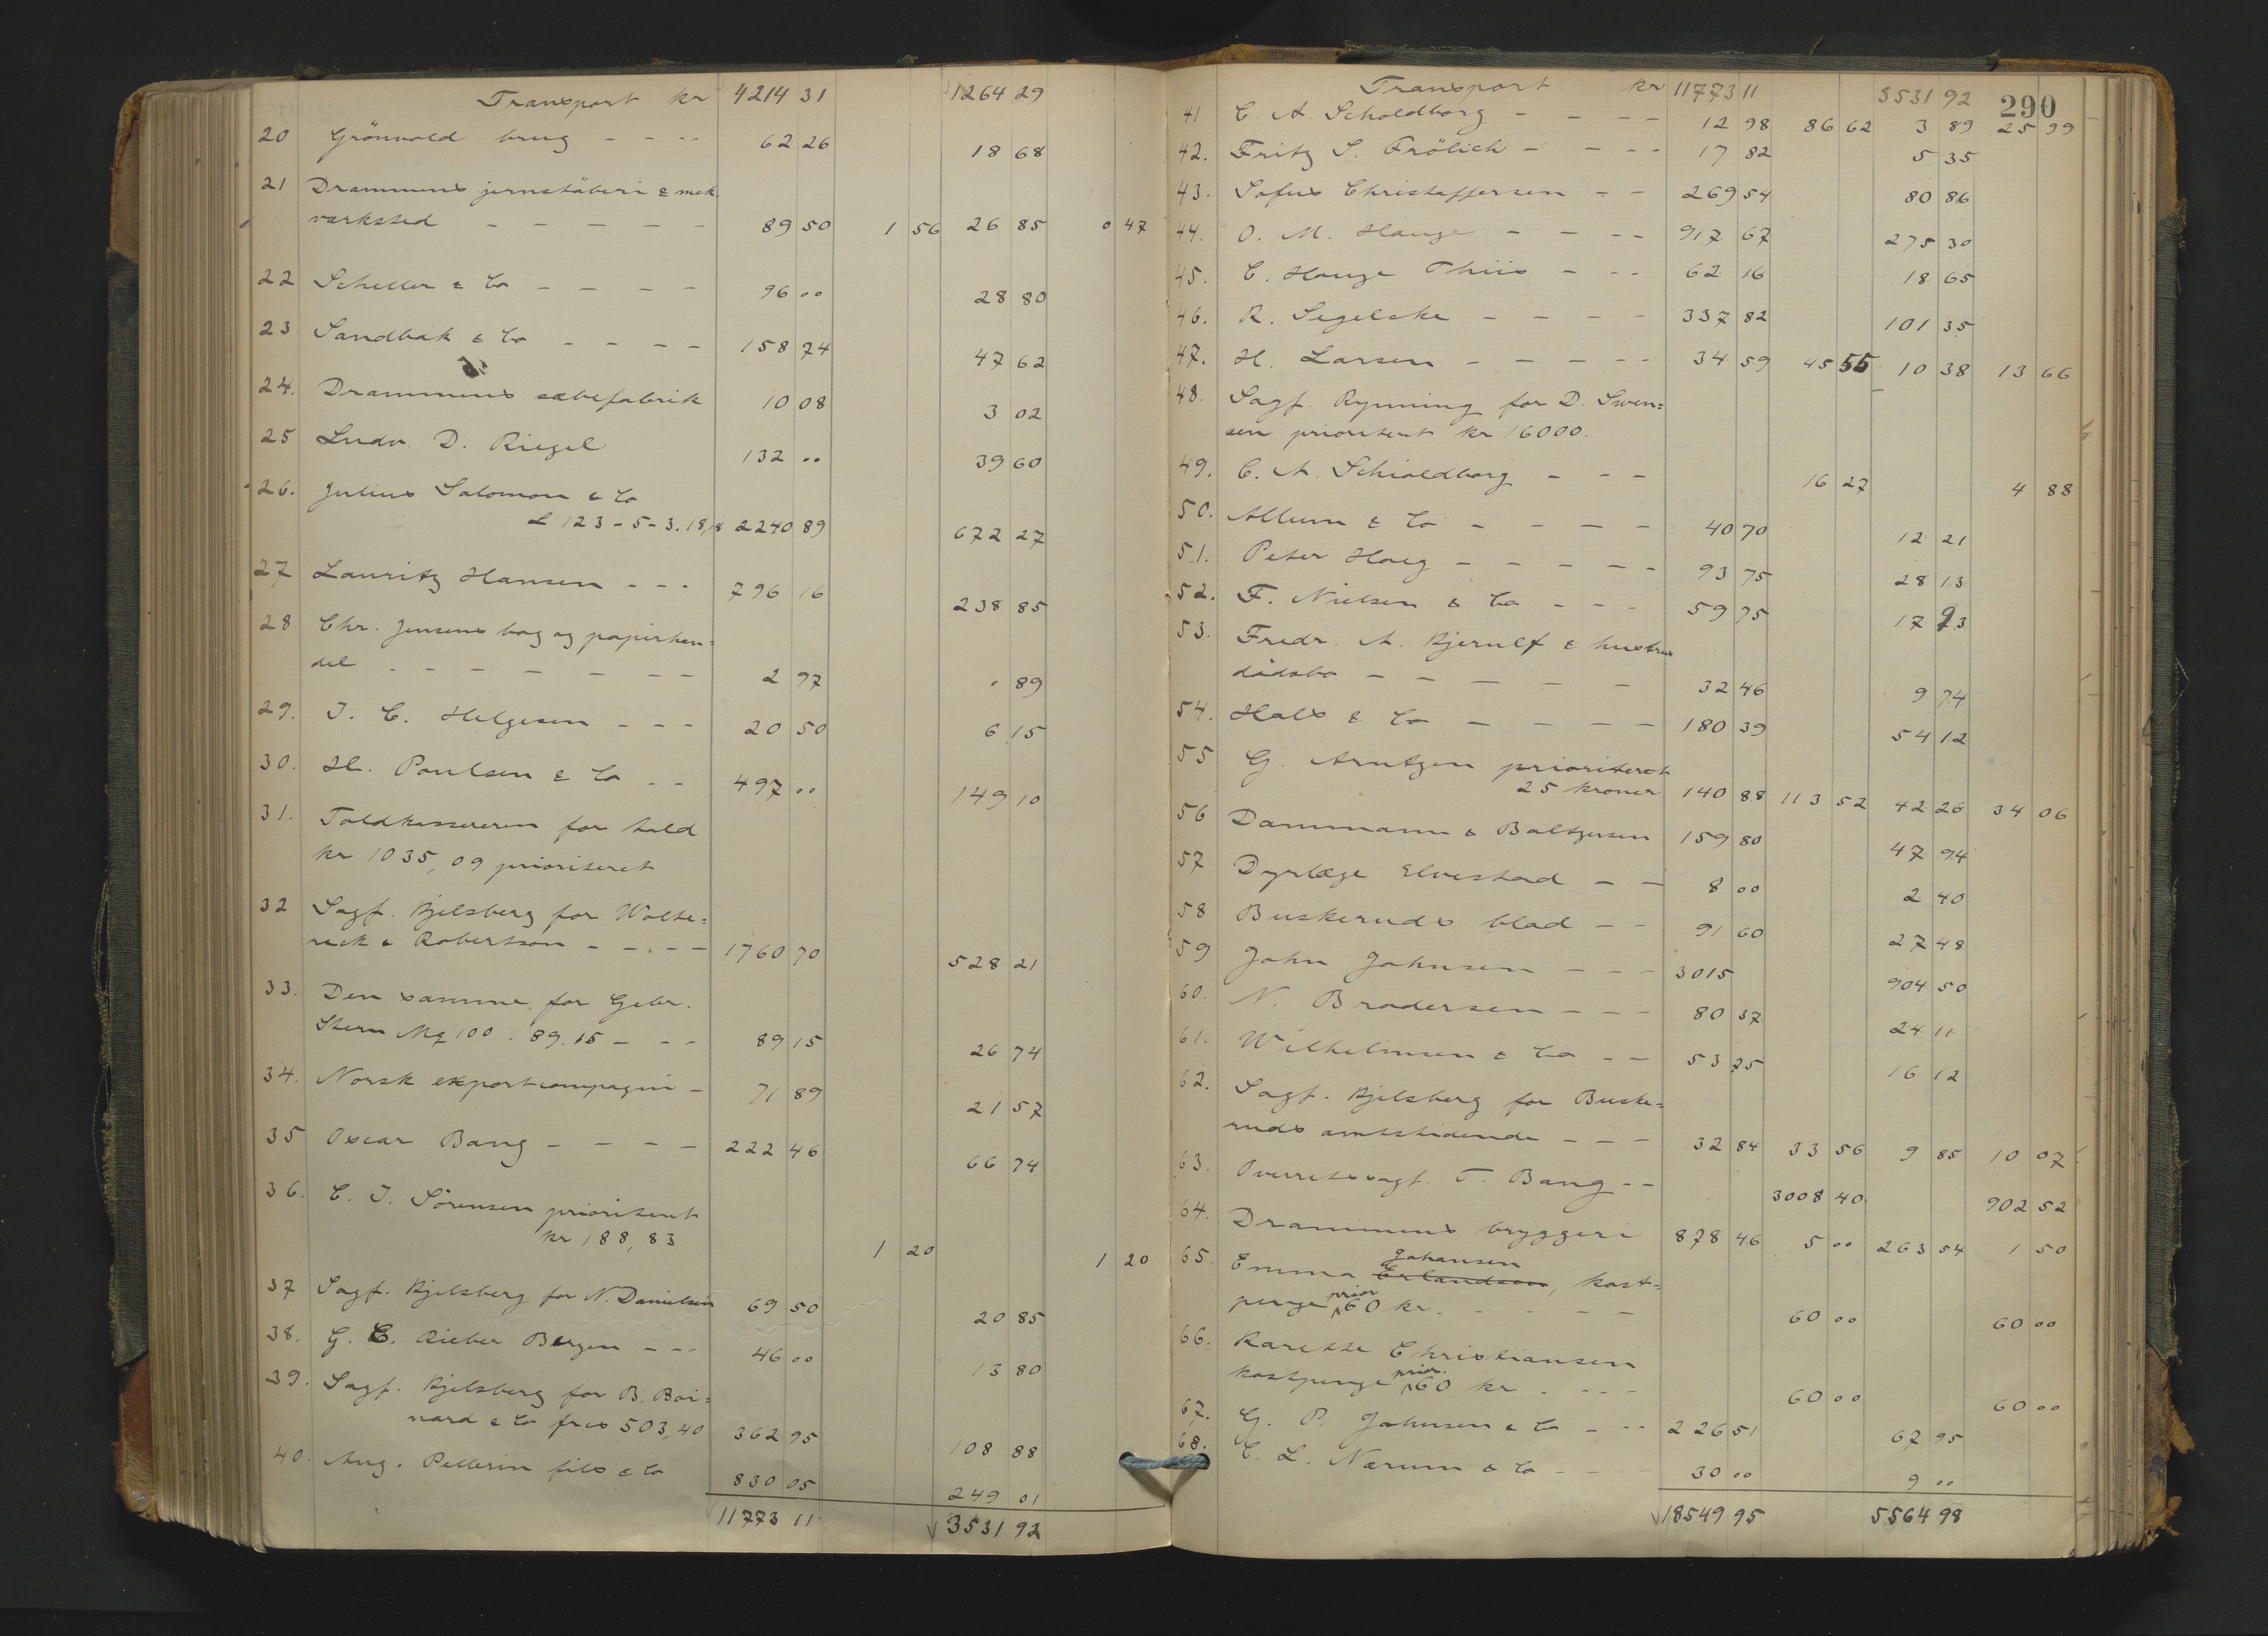 Transport kr 4214 31 1264 29
20 Grönvold brug - - - - 62 26 18 68
21 Drammens jernstöberi & mek.
værksted - - - - - 89 50 1 56 26 85 0 47
22 Scheller & Co - - - - 96 00 28 80
23 Sandbak & Co - - - - 158 74 47 62
24. Drammens sæbefabrik 10 08 3 02
25 Ludv. D. Riegel 132 00 39 60
26. Julius Salomon & Co
£ 123-5-3. 18,18 2240 89 672 27
27 Lauritz Hansen - - - 796 16 238 85
28 Chr. Jensens bog og papirhan=
del - - - - - - - 2 97 . 89
29. J. C. Helgesen - - - 20 50 6 15
30. H. Poulsen & Co - - 497 00 149 10
31. Toldkassereren for told
kr 1035,09 prioriteret
32 Sagf. Kjelsberg for Wolte=
reck & Robertson - - - - 1760 70 528 21
33. Den samme for Gebr.
Stern Mk 100 . 89.15 - - - 89 15 26 74
34. Norsk exportcompagni - 71 89 21 57
35 Oscar Bang - - - - 222 46 66 74
36. C. J. Sörensen prioriteret
kr 188,83 1 20 1 20
37 Sagf. Kjelsberg for N. Danielsen 69 50 20 85
38. G. C. Rieber Bergen - - - 46 00 13 80
39. Sagf. Kjelsberg for B. Boi=
nard & Co frcs 503,40 362 95 108 88
40. Aug. Pellerin fils & Co 830 05 249 01
11773 11 3531 92
290
Transport kr 11773 11 3531 92
41 C. A. Scholdborg - - - - 12 98 86 62 3 89 25 99
42. Fritz S. Frölich - - - - 17 82 5 35
43. Sofus Christoffersen - - 269 54 80 86
44. O. M. Hauge - - - - 917 67 275 30
45. C. Hauge Thiis - - - 62 16 18 65
46. R. Segelcke - - - - 337 82 101 35
47. H. Larsen - - - - - 34 59 45 55 10 38 13 66
48. Sagf. Rynning for D. Swen=
sen prioriteret kr 16000.
49. C. A. Schioldborg - - - 16 27 4 88
50. Allum & Co - - - - 40 70 12 21
51. Peter Hoeg - - - - - 93 75 28 13
52. F. Nielsen & Co - - - 59 75 17 93
53. Fredr. A. Kjerulf & hustrus
dödsbo - - - - - 32 46 9 74
54. Hals & Co - - - - 180 39 54 12
55 G. Arntzen prioriteret
25 kroner 140 88 113 52 42 26 34 06
56 Dammann & Baltzersen 159 80 47 94
57 Dyrlæge Elvestad - - 8 00 2 40
58 Buskeruds blad - - 91 60 27 48
59 John Johnsen - - - 3015 904 50
60. N. Brodersen - - - 80 37 24 11
61. Wilhelmsen & Co - - 53 75 16 12
62. Sagf. Kjelsberg for Buske=
ruds amtstidende - - - 32 84 33 56 9 85 10 07
63. Overretssagf. T. Bang - - 3008 40 902 52
64. Drammens bryggeri 878 46 5 00 263 54 1 50
Johansen
65. Emma Erlandsen, kost=
penge prior 60 kr. - - - - - 60 00 60 00
66. Karette Christiansen
kostpenge prior. 60 kr . - - - 60 00 60 00
67. G. P. Johnsen & Co - - - 226 51 67 95
68. C. L. Nærum & Co - - - 30 00 9 00
18549 95 5564 98